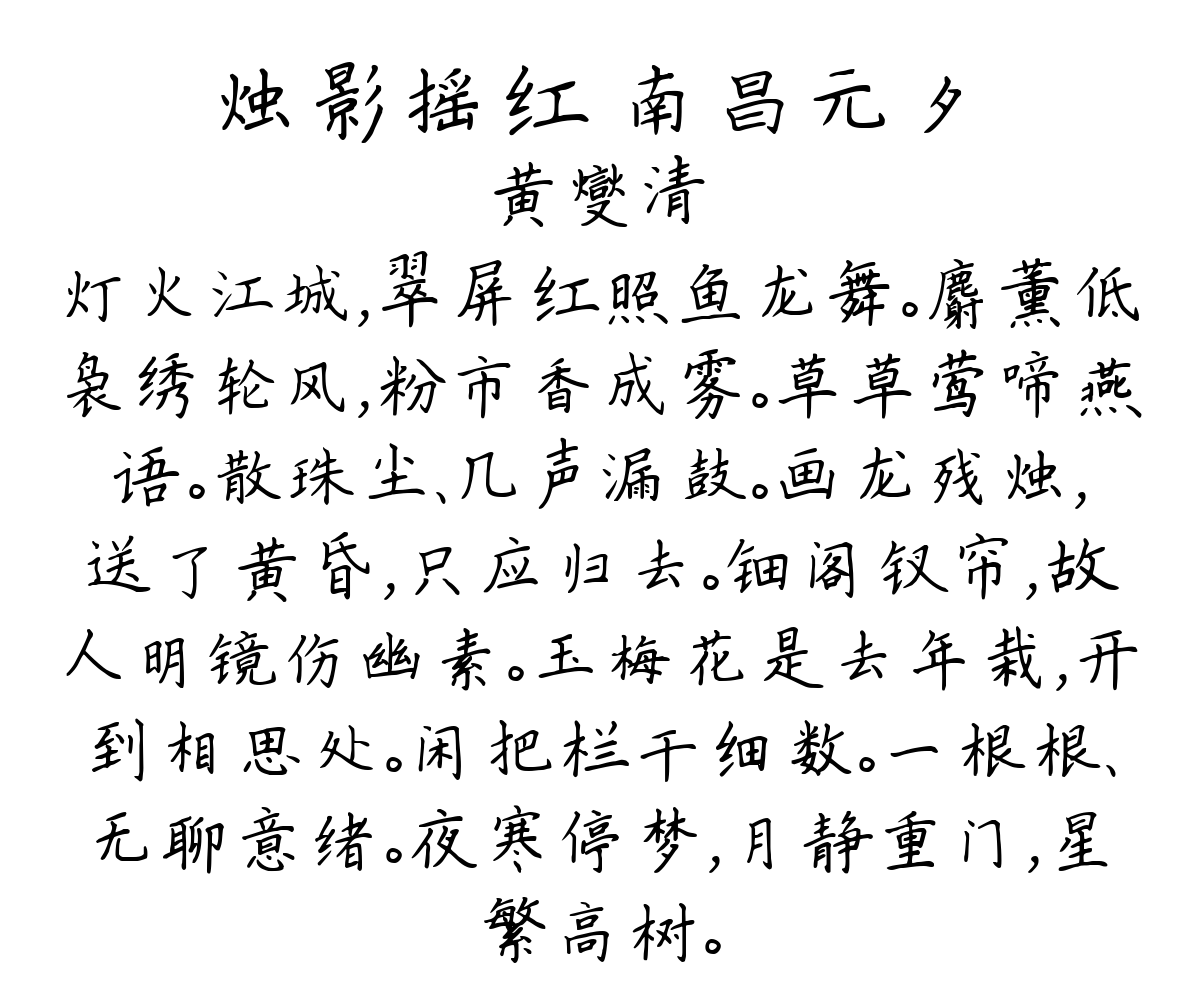 烛影摇红 南昌元夕
黄燮清
灯火江城,翠屏红照鱼龙舞。麝薰低
袅绣轮风,粉市香成雾。草草莺啼燕
语。散珠尘、几声漏鼓。画龙残烛,
送了黄昏,只应归去。钿阁钗帘,故
人明镜伤幽素。玉梅花是去年栽,开
到相思处。闲把栏干细数。一根根、
无聊意绪。夜寒停梦,月静重门,星
繁高树。